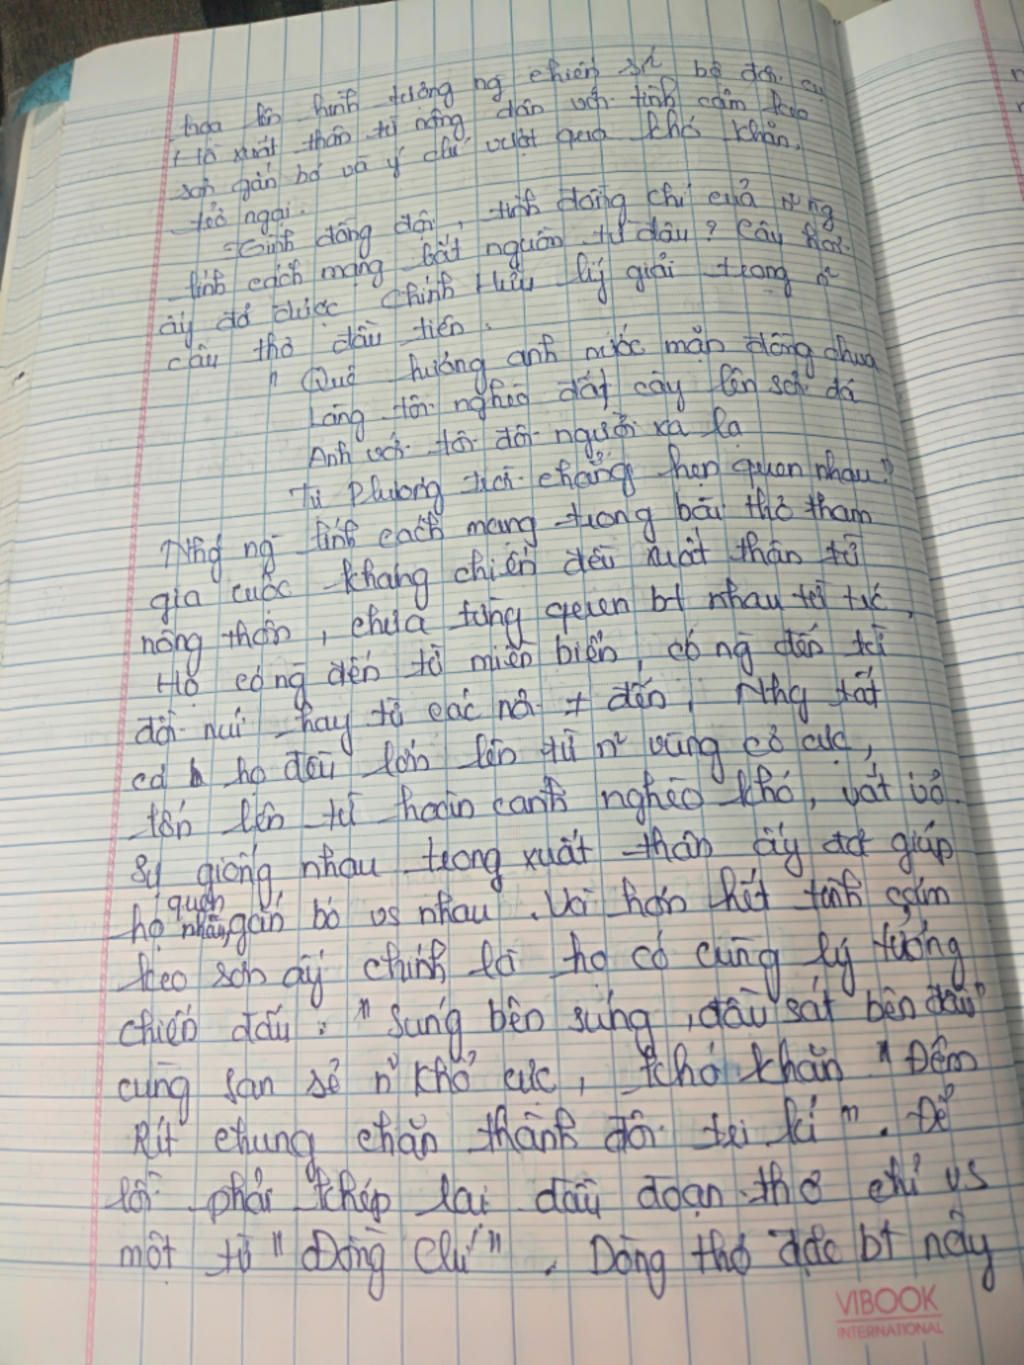 họa lên hình tượng ng chiến sĩ bộ đội cụ
Hồ xuất thân từ nông dân với tình cảm keo
sơn gắn bó và ý chí vượt qua khó khăn,
trở ngại.
Tình đồng đội, tình đồng chí của những
lính cách mạng bắt nguồn từ đâu? Câu hỏi
ấy đã được Chính Hữu lý giải trong n~
câu thơ đầu tiên.
" Quê hương anh nước mặn đồng chua
Làng tôi nghèo đất cày lên sỏi đá
Anh với tôi đôi người xa lạ
Từ phương trời chẳng hẹn quen nhau"
Như ng lính cách mạng trong bài thơ tham
gia cuộc kháng chiến đều xuất thân từ
nông thôn, chưa từng quen bt nhau từ trc,
Họ có ng đến từ miền biển, có ng đến từ
đồi núi hay từ các nơi ≠ đến. Nhg tất
cả họ đều lớn lên từ n~ vùng cơ cực,
lớn lên từ hoàn cảnh nghèo khó, vất vả.
Sự giống nhau trong xuất thân ấy đã giúp
quen
họ nhau, gắn bó vs nhau. Và hơn hết tình cảm
keo sơn ấy chính là họ có cùng lý tưởng
chiến đấu. "Súng bên súng, đầu sát bên đầu"
cùng san sẻ n~ khổ cực, khó khăn "Đêm
Rét chung chăn thành đôi tri kỉ". Để
rồi phải khép lại đầu đoạn thơ chỉ vs
một từ "Đồng Chí". Dòng thơ đặc bt này
VIBOOK
INTERNATIONAL